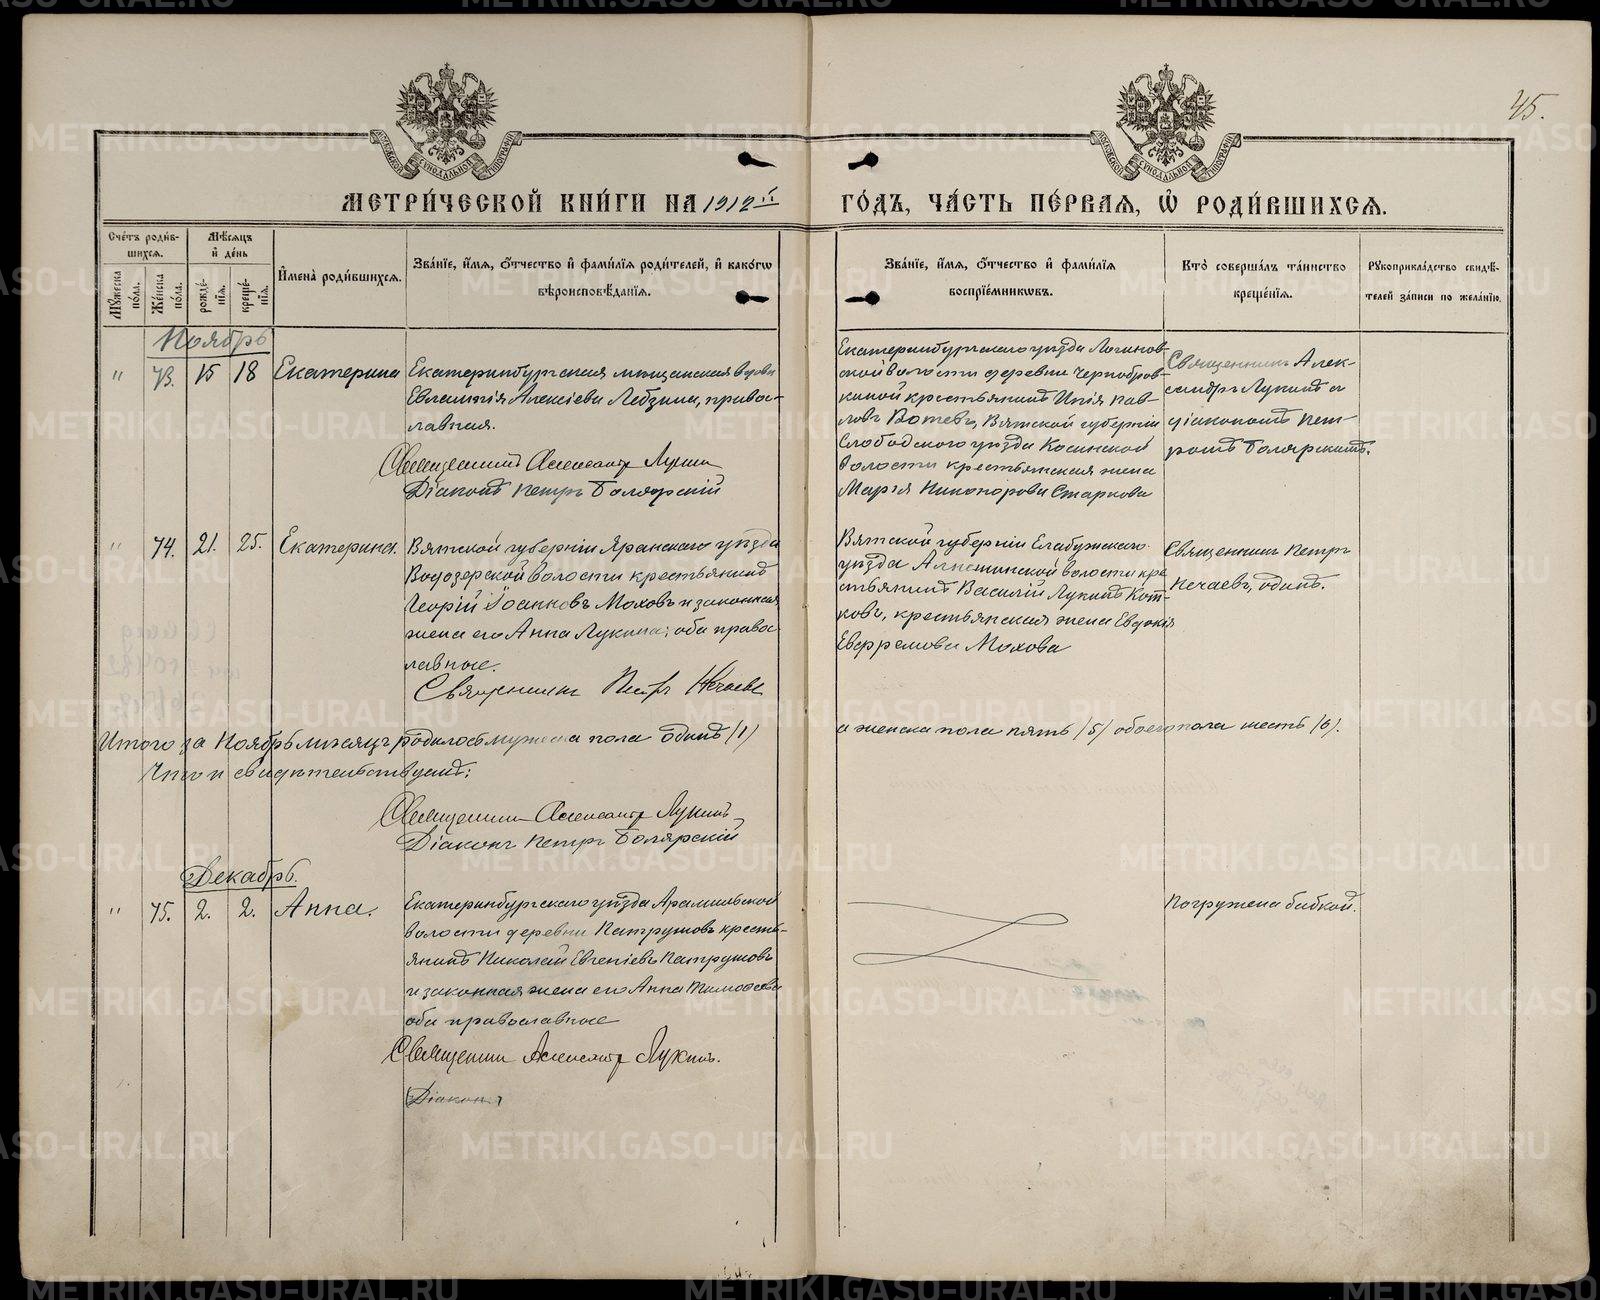 45.
МЕТРИ́ЧЕСКОЙ КНИ́ГИ НА 1912й ГО́ДЪ, ЧА́СТЬ ПЕ́РВАЯ, Ѡ҆ РОДИ́ВШИХСЯ.
Сче́тъ роди́в-
шихся.
Мѣ́сяцъ
и҆ де́нь
Мꙋ́жеска по́ла.
Же́нска по́ла.
рожде́-
нїя.
креще́-
нїя.
И҆мена̀ роди́вшихся.
Зва́нїе, и҆́мя, ѻ҆́тчество и҆ фами́лїя роди́телей, и҆ како́гѡ
вѣроисповѣ́данїя.
Зва́нїе, и҆́мя, ѻ҆́тчество и҆ фами́лїя
воспрїе́мникѡвъ.
Кто̀ соверша́лъ та́инство
креще́нїя.
Рꙋкоприкла́дство свидѣ́-
телей за́писи по жела́нїю.
Ноябрь
" 73. 15 18 Екатерина
Екатеринбургская мѣщанская вдова
Евлампія Алексіева Лебзина, право-
славная.
Священникъ Александръ Лукинъ
Діаконъ Петръ Болярскій
Екатеринбургскаго уѣзда Логинов-
ской волости деревни Чернобров-
киной крестьянинъ Илія Пав-
ловъ Вотевъ, Вятской губерніи
Слободского уѣзда Косинской
волости крестьянская жена
Марія Никонорова Старкова
Священникъ Алек-
сандръ Лукинъ съ
діакономъ Пет-
ромъ Болярскимъ.
" 74. 21. 25. Екатерина.
Вятской губерніи Яранскаго уѣзда
Водозерской волости крестьянинъ
Георгій Іоанновъ Моховъ и законная
жена его Анна Лукина; оба право-
славные.
Священникъ Петръ Нечаевъ
Вятской губерніи Елабужскаго
уѣзда волости кре
стьянинъ Василій Лукинъ Кот-
ковъ, крестьянская жена Евдокія
Евфремова Мохова
Священникъ Петръ
Нечаевъ, одинъ.
Итого за Ноябрь мѣсяцъ родилось мужеска пола одинъ (1) а женска пола пять (5) обоего пола шесть (6).
Что и свидѣтельствуемъ:
Священникъ Александръ Лукинъ
Діаконъ Петръ Болярскій
Декабрь.
" 75. 2. 2. Анна.
Екатеринбургскаго уѣзда Арамильской
волости деревни Патрушовъ кресть-
янинъ Николай Евгеніевъ Патрушовъ
и законная жена его Анна Тимофеева
оба православные
Священникъ Александръ Лукинъ.
Діаконъ
Погружена бабкой.
METRIKI.GASO-URAL.RU